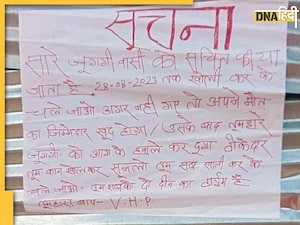 DNA हिंदी
सूचना
सारे जुग्गी वासी को सुचित कीया
जाता है 28-08-2023 तक खाली कर के
चले जाओ अगर नही गए तो अपने मौत
का जिम्मेदार खुद होगा / उसके बाद तुम्हारे
जुग्गी को आग के हवाले कर दुगा ठीकेदार
तुम कान खोलकर सुनलो तुम सब खाली कर के
चले जाओ तुम सबके दो दीन का टाईम है
तुम्हारा बाप - V.H.P